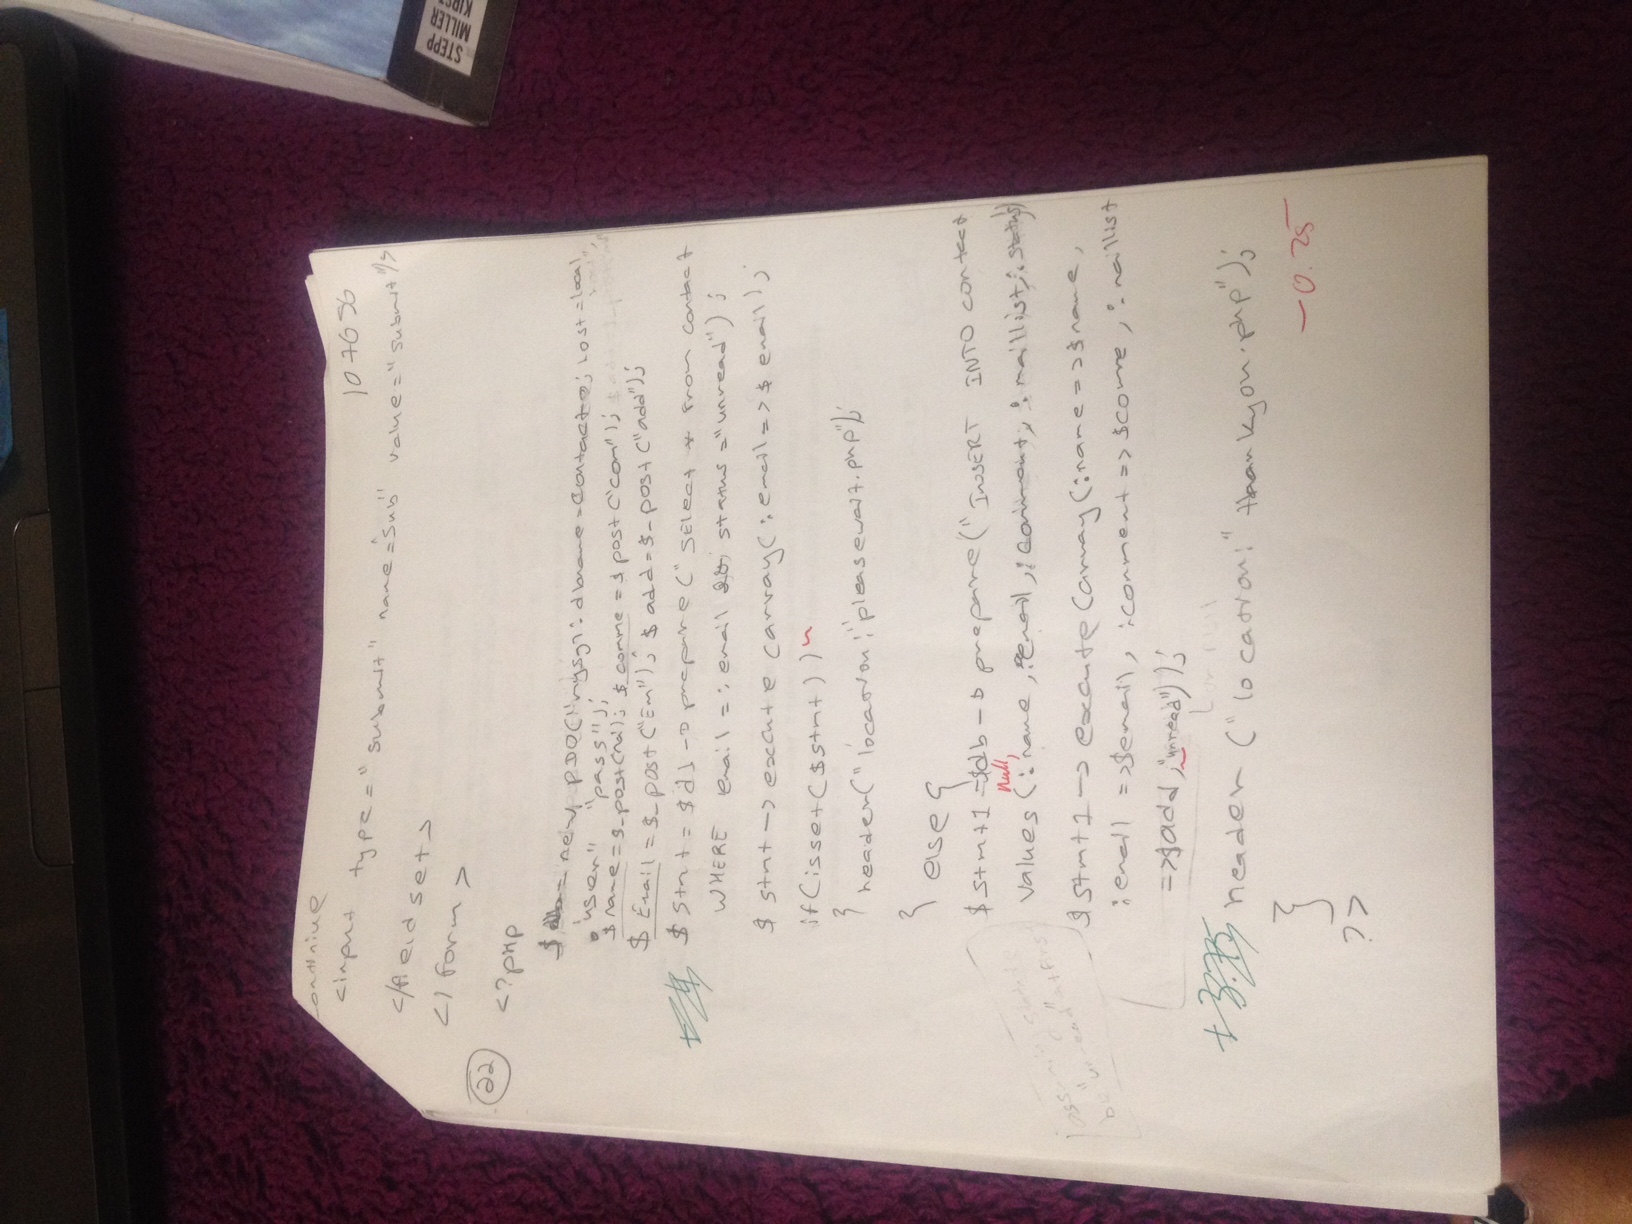 continue
107656
<input type="submit" name="sub" value="submit"/>
</fieldset>
</form>
22
<?php
$db= new PDO("mysql: dbname=contacto; host=local
"user" "pass");
$name=$_post(na); $comme=$post("com");
$Email=$_post("Em"); $add=$_post("add");
$stmt=$db->prepare("SELECT * From contact
WHERE email=:email && status="unread");
$stmt->excute(array(:email=>$email);
if(isset($stmt))
} header("location:"pleasewait.php");
} else {
$stmt1=$db->prepare("INSERT INTO contact
null,
values(:name,:email,:comment,:maillist,:status)
assuming status
be "unread" at first
$stmt1->excute(array(:name=>$name,
:email=>$email, :comment=>$comme, :maillist
=>$add,"unread"));
or null
+3.75
header("location:" thankyou.php");
-0.25
}
?>
STEPP
MILLER